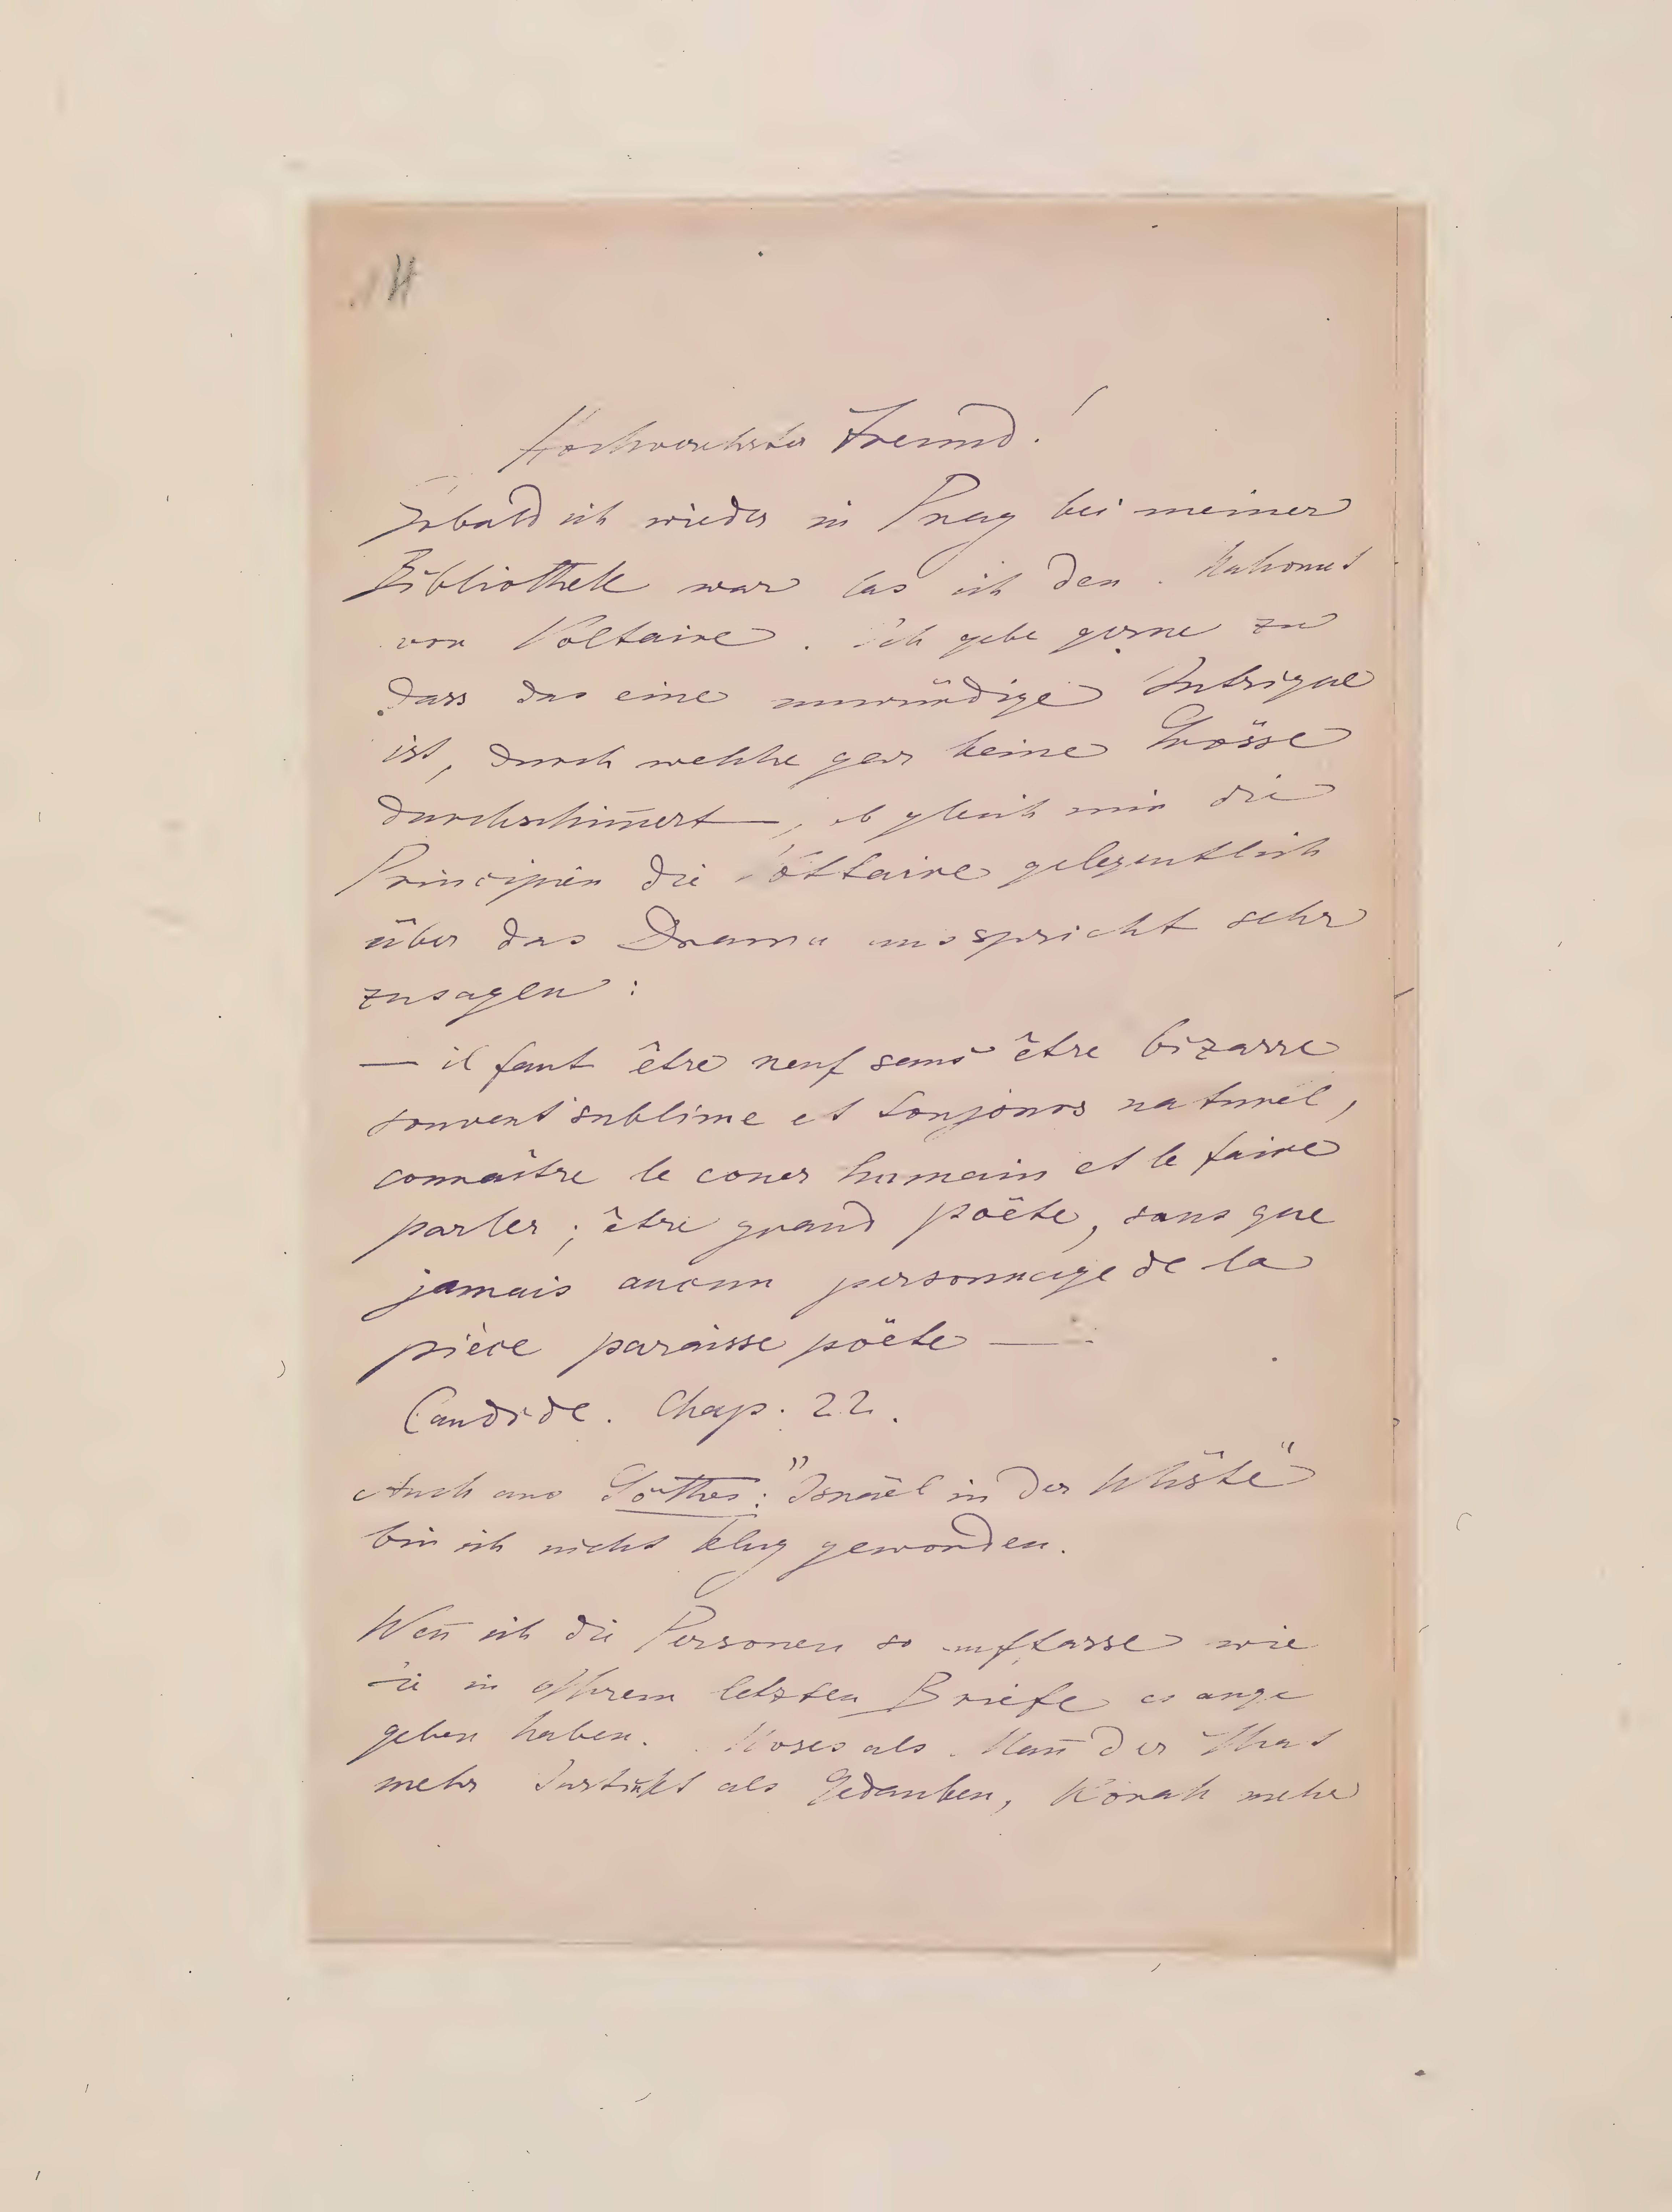 Hochverehrter Freund!
Sobald ich wieder in Prag bei meiner
Bibliothek war las ich den Mahomet
von Voltaire. Ich gebe gerne zu
dass das eine unwürdige Intrigue
ist, durch welche gar keine Grösse
durchschim̄ert —, obgleich mir die
Principien die Voltaire gelegentlich
über das Drama ausspricht sehr
zusagen:
— il faut être neuf sans être bizarre
souvent sublime et toujours naturel,
connaître le coeur humain et le faire
parler; être grand poëte, sans que
jamais aucun personnage de la
pièce paraisse poëte —
Candide. Chap. 22.
Auch aus Göthes: „Israël in der Wüste"
bin ich nicht klug geworden.
Wen̄ ich die Personen so auffasse wie
Sie in Ihrem letzten Briefe es ange
geben haben. Moses als Man̄ der That
mehr Instinkt als Gedanken, Korah mehr